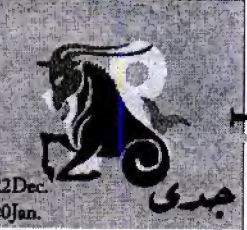 2Dec.
0Jan.
جدی